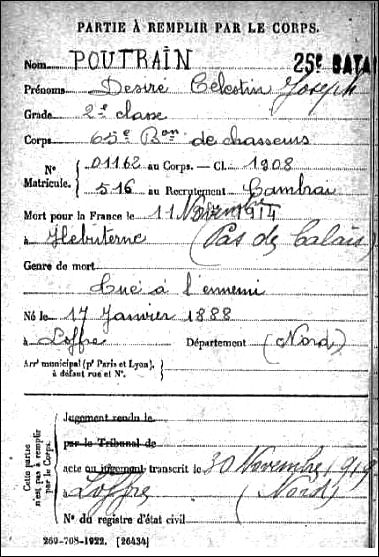 PARTIE À REMPLIR PAR LE CORPS.
Nom POUTRAIN 25e BATA
Prénoms Désiré Célestin Joseph
Grade 2e classe
Corps 65e Bon de chasseurs
N° Matricule. { 01162 au Corps. — Cl. 1908
516 au Recrutement Cambrai
Mort pour la France le 11 Novembre 1914
à Hébuterne (Pas de Calais)
Genre de mort
Tué à l'ennemi
Né le 17 Janvier 1888
à Loffre Département (Nord)
Arrt municipal (pr Paris et Lyon), à défaut rue et N°. {
Cette partie n'est pas à remplir par le Corps.
Jugement rendu le
par le Tribunal de
acte ou jugement transcrit le 30 Novembre 1919
à Loffre (Nord)
N° du registre d'état civil
269-708-1922. [26434]